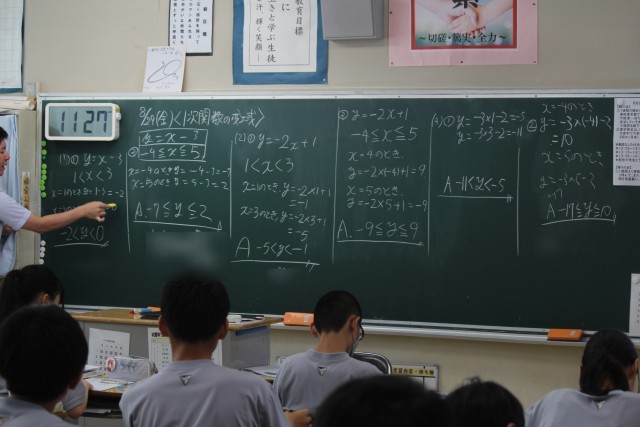 教育目標
〜切磋・簡実・全力〜
8/29(金) <1次関数の
11:27
(1)① y=x-3
1<x<3
x=1のとき 1-3=-2
-2<y<0
② y=x-3
-4≦x≦5
x=-4のとき y=-4-3=-7
x=5のとき y=5-3=2
A. -7≦y≦2
(2)① y=-2x+1
1<x<3
x=1のとき y=-2×1+1
=-1
x=3のとき y=-2×3+1
=-5
A -5<y<-1
② y=-2x+1
-4≦x≦5
x=4のとき
y=-2×(-4)+1=9
x=5のとき
y=-2×5+1=-9
A. -9≦y≦9
(3)① y=-3×1-2=-5
y=-3×3-2=-11
A -11<y<-5
x=-4のとき
② y=-3×(-4)-2
=10
x=5のとき
y=-3×5-2
=-17
A -17≦y≦10